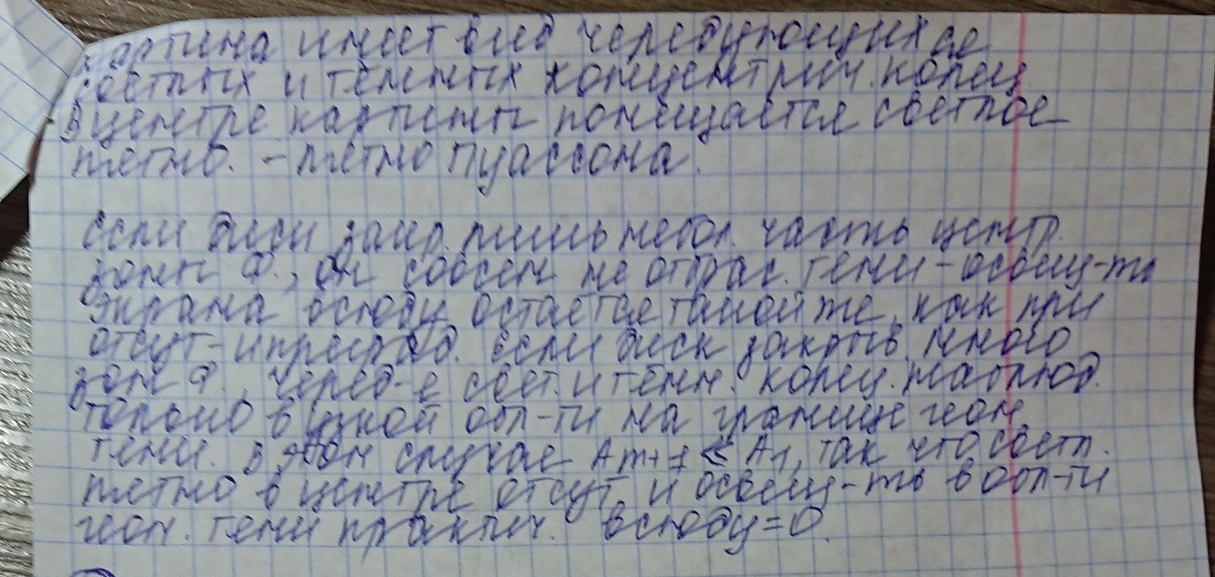 картина имеет вид чередующихся
светлых и тёмных концентрич. колец
В центре картины помещается светлое
пятно. - пятно Пуассона.
Если диск закр. лишь небол. часть центр.
зоны Ф., он совсем не отбрас. тени - освещ-ть
экрана всюду остается такой же, как при
отсут-и преград. если диск закрыв. много
зон Ф., черед-е свет. и темн. колец наблюд.
только в узкой обл-ти на границе геом.
тени. в этом случае Am+1 ≪ A1, так что светл.
пятно в центре отсут. и освещ-ть в обл-ти
геом. тени практич. всюду = 0.